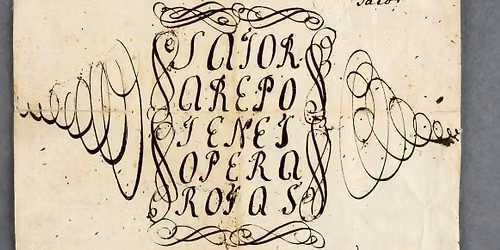 Jacob
SATOR
AREPO
TENET
OPERA
ROTAS